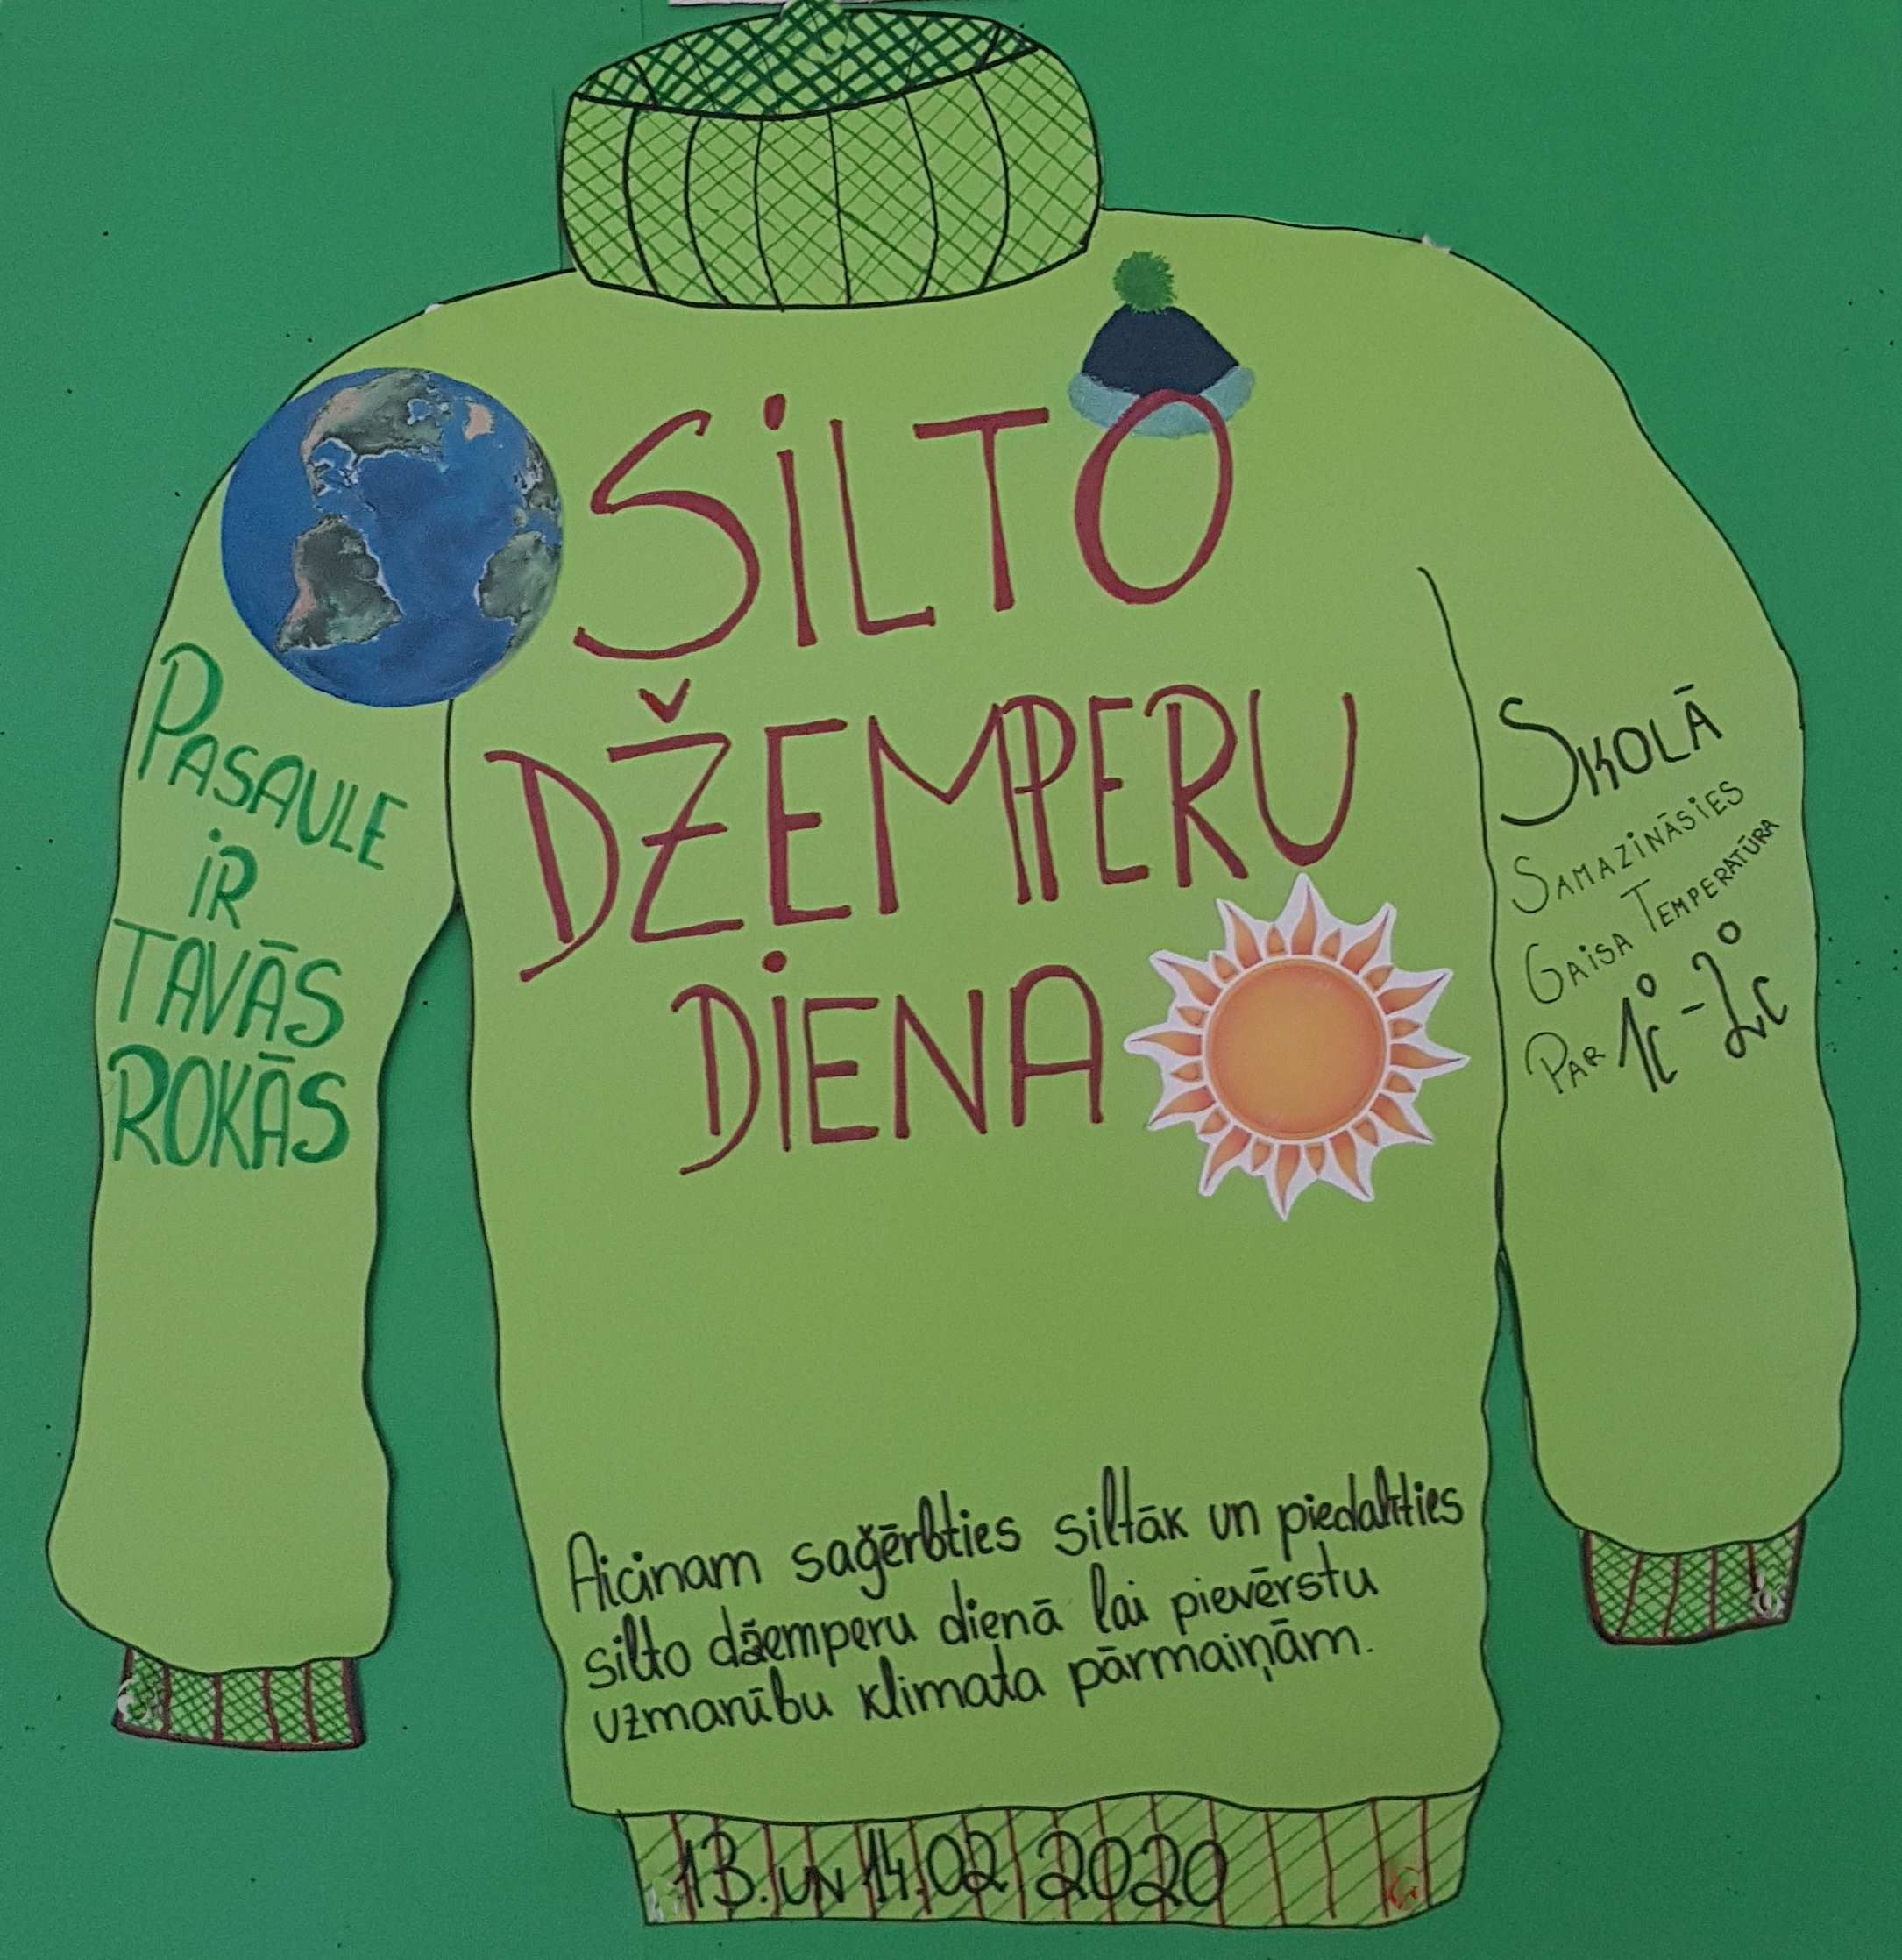 SiLTO
DŽEMPERU
DiENA
PASAULE
iR
TAVĀS
ROKĀS
SKOLĀ
SAMAZiNĀSiES
GAiSA TEMPERATŪRA
PAR 1°C - 2°C
Aicinam saģērbties siltāk un piedalīties
silto džemperu dienā lai pievērstu
uzmanību klimata pārmaiņām.
13. UN 14.02 2020